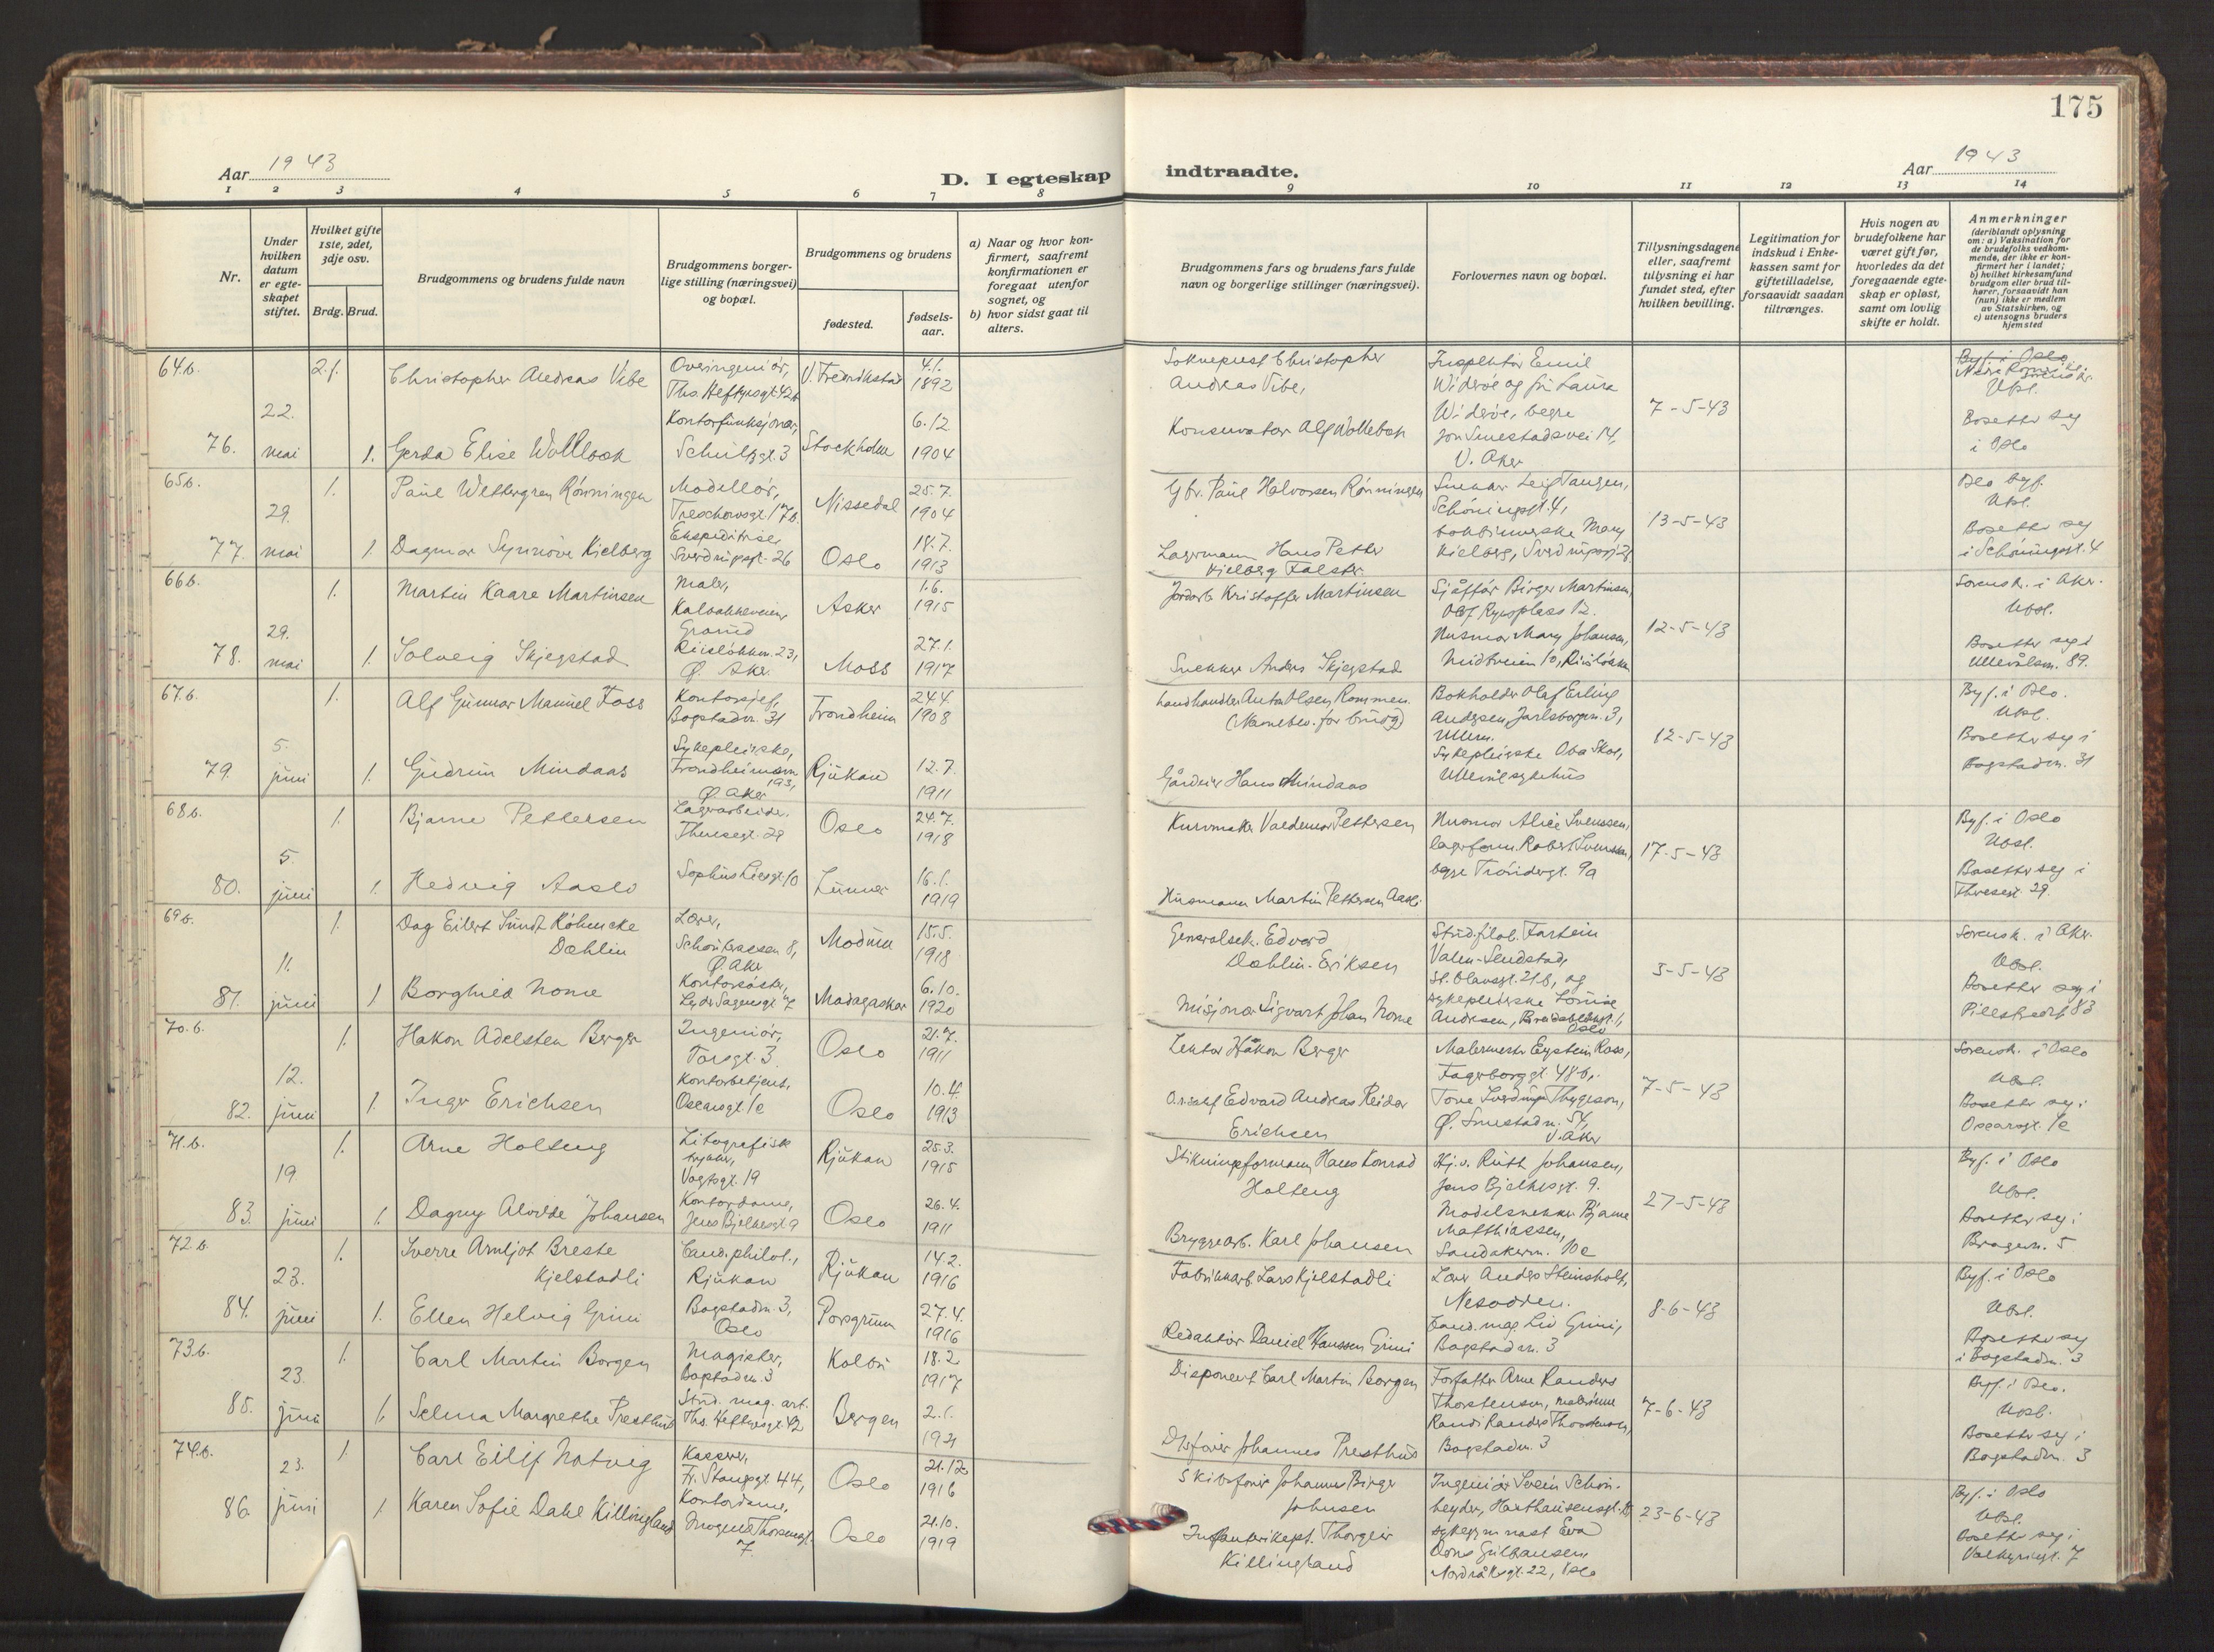 175
Aar 1943
D. I egteskap indtraadte.
Aar 1943
1 2 3 4 5 6 7 8 9 10 11 12 13 14
Nr.
Under hvilken datum er egteskapet stiftet.
Hvilket gifte 1ste, 2det, 3dje osv.
Brdg. Brud.
Brudgommens og brudens fulde navn
Brudgommens borgerlige stilling (næringsvei) og bopæl.
Brudgommens og brudens
fødested.
fødselsaar.
a) Naar og hvor konfirmert, saafremt konfirmationen er foregaat utenfor sognet, og
b) hvor sidst gaat til alters.
Brudgommens fars og brudens fars fulde navn og borgerlige stillinger (næringsvei).
Forlovernes navn og bopæl.
Tillysningsdagene eller, saafremt tillysning ei har fundet sted, efter hvilken bevilling.
Legitimation for indskud i Enkekassen samt for giftetilladelse, forsaavidt saadan tiltrænges.
Hvis nogen av brudefolkene har været gift før, hvorledes da det foregaaende egteskap er opløst, samt om lovlig skifte er holdt.
Anmerkninger (deriblandt oplysning om: a) Vaksination for de brudefolks vedkommende, der ikke er konfirmert her i landet; b) hvilket kirkesamfund brudgom eller brud tilhører, forsaavidt han (hun) ikke er medlem av Statskirken, og c) utensogns bruders hjemsted
64.b. 2.f. Christopher Andreas Vibe
Overingeniør, Ths. Heftyesgt. 42b
V. Fredrikstad 4.1. 1892
Sokneprest Christopher Andreas Vibe,
Inspektør Emil Widerøe og fru Laura Widerøe, begge
V. Aker
7-5-43
Byf. i Oslo
Bosetter seg i Oslo
76. 22. mai 1. Gerda Elise Wollebæk
Kontorfunksjonær, Schultzgt. 3
Stockholm 6.12 1904
Konservator Alf Wollebæk
65b. 1. Paul Wettergren Rønningen
Modellør, Treschowsgt. 17b.
Nissedal 25.7. 1904
Gbr. Paul Halvorsen Rønningen
Snekker Leif Tangen, Schøningsgt. 4,
13-5-43
Oslo byf.
Bosetter seg i Schøningsgt. 4
77. 29. mai 1. Dagmar Synnøve Kielberg
Ekspeditrise, Sverdrupsgt. 26
Oslo 18.7. 1913
Lagermann Hans Petter Kielberg Falster
66b. 1. Martin Kaare Martinsen
Maler, Kalbakkveien, Grorud
Asker 1.6. 1915
Jordarb. Kristoffer Martinsen
Sjåfør Birger Martinsen, Olaf Ryesplass 12.
Husmor Mary Johansen,
12-5-43
Sorensk. i Aker.
Bosetter seg i Ullevålsvn. 89.
78. 29. mai 1. Solveig Skjegstad
Ø. Aker
Moss 27.1. 1917
Snekker Anders Skjegstad
67.b. 1. Alf Gunnar Manuel Foss
Kontorsjef, Bogstadvn. 31
Trondheim 24.4. 1908
Landhandler Anton Olsen Rommen.
Bokholder Olaf Erling Andersen, Jarlsborgvn. 3, Ullern.
Sykepleierske Oba Skar, Ullevål sykehus
12-5-43
Byf. i Oslo.
Bosetter seg i Bogstadvn. 31
79. 5. juni 1. Gudrun Mindaas
Sykepleierske, Trondheimsvn. 193, Ø. Aker
Rjukan 12.7. 1911
Gårdeier Hans Mindaas
68b. 1. Bjarne Pettersen
Lagerarbeider, Theresegt. 29
Oslo 24.7. 1918
Kurvmaker Valdemar Pettersen
Husmor Alice Svenssen, lagerform. Robert Svenssen, begge Trøndergt. 9a
17-5-43
Byf. i Oslo
Bosetter seg i Theresegt. 29.
80. 5. juni 1. Hedvig Aaslo
Sophus Liesgt. 10
Lunner 16.1. 1919
Husmann Martin Pettersen
69b. 1. Dag Eilert Sundt Køhncke Dæhlin
Lærer, Ø. Aker
Modum 15.5. 1918
Generalsek. Edvard Dæhlin-Eriksen
Stud. filol. Fartein Valen-Sendstad, St. Olavsgt. 21b, og sykepleierske Louise Andersen, Oslo
5-5-43
Sorensk. i Aker.
Bosetter seg i Pilestredet 83
81. 11. juni 1 Borghild Nome
Kontorsøster, Lyder Sagensgt. 7
Madagaskar 6.10. 1920
Misjonær Sigvart Johan Nome
70.b. 1. Håkon Adelsten Berger
Ingeniør, Torsgt. 3
Oslo 21.7. 1911
Lektor Håkon Berger
Malermester Eystein Ross, Fagerborggt. 48b,
Tove Sverdrup Thygeson, Ø. Smestadvn. 54, V. Aker
7-5-43
Sorensk. i Oslo
Bosetter seg i Oscarsgt. 1c
82. 12. juni 1. Inger Erichsen
Kontorbetjent, Oscarsgt. 1c
Oslo 10.4. 1913
Edvard Andreas Reidar Erichsen
71.b. 1. Arne Holteng
Litografisk trykker, Vogtsgt. 19
Rjukan 25.3. 1915
Stikningsformann Hans Konrad Holteng
Hj.v. Ruth Johansen, Jens Bjelkesgt. 9.
Modelsnekker Bjarne Matthiassen, Sandakervn. 10c
27-5-43
Byf. i Oslo
Bosetter seg i Bragevn. 5
83. 19. juni 1. Dagny Alvilde Johansen
Kontordame, Jens Bjelkesgt. 9
Oslo 26.4. 1911
Bryggearb. Karl Johansen
72.b. 1. Sverre Arnljot Breste Kjelstadli
Cand. philol., Rjukan
Rjukan 14.2. 1916
Fabrikkarb. Lars Kjelstadli
Lærer Anders Steinsholt, Nesodden.
Cand. mag. Liv Grini, Bogstadvn. 3
8-6-43
Byf. i Oslo
Bosetter seg i Bogstadvn. 3
84. 23. juni 1. Ellen Helvig Grini
Bogstadvn. 3, Oslo
Porsgrunn 27.4. 1916
Redaktør Daniel Hanssen Grini
73.b. 1. Carl Martin Borgen
Magister, Bogstadvn. 3
Kolbu 18.2 1917
Disponent Carl Martin Borgen
Forfatter Arne Randers Thorstensen, malerinne Randi Randers Thorstensen, Bogstadvn. 3
7-6-43
Byf. i Oslo.
Bosetter seg i Bogstadvn. 3
85. 23. juni 1. Selma Margrethe Presthus
Stud. mag. art. Ths. Heftyesgt. 42
Bergen 2.1. 1921
Johannes Presthus
74.b. 1. Carl Eilif Natvig
Kasserer, Fr. Stangsgt. 44,
Oslo 21.12 1916
Skibsfører Johannes Birger Johnsen
Ingeniør Svein Schønheyder,
Nordråksgt. 22, Oslo
23-6-43
Byf. i Oslo
Bosetter seg i Valkyriegt. 7
86. 23. juni 1. Karen Sofie Dahl Killingland
Kontordame, Mogens Thorsensgt. 7
Oslo 21.10. 1919
Infanterikapt. Thorgeir Killingland